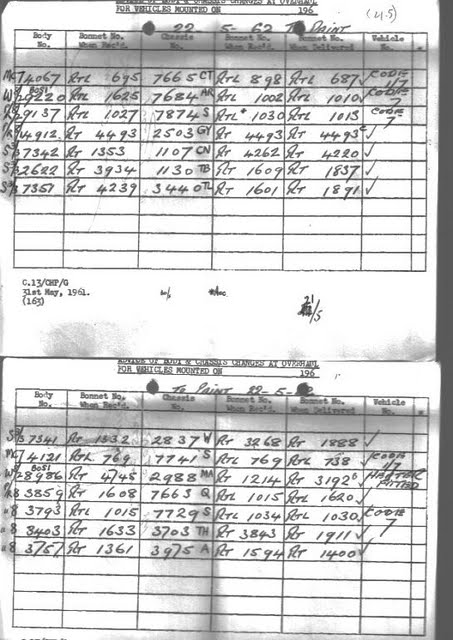 ADVICE OF BODY & CHASSIS CHANGES AT OVERHAUL
FOR VEHICLES MOUNTED ON 22-5-62 To Paint 196
(45)
Body No. Bonnet No. When Rec'd. Chassis No. Bonnet No. When Rec'd. Bonnet No. When Delivered Vehicle No.
4067 RTL 695 7665 CT RTL 898 RTL 687 ✓ CODE 1/7
8051
29220 RTL 1625 7684 AR RTL 1002 RTL 1010 ✓ CODE 7
9137 RTL 1027 7874 S RTL 1030 RTL 1013 CODE 7
4912 RT 4493 2503 GY RT 4493 RT 4493 ✓
S3/7342 RT 1353 1107 CN RT 4262 RT 4220 ✓
2622 RT 3934 1130 TB RT 1609 RT 1837 ✓
7351 RT 4239 3440 TL RT 1601 RT 1891 ✓
C.13/CHP/G
31st May, 1961.
(163)
21/5
ADVICE OF BODY & CHASSIS CHANGES AT OVERHAUL
FOR VEHICLES MOUNTED ON 196
To Paint 22-5-62
Body No. Bonnet No. When Rec'd. Chassis No. Bonnet No. When Rec'd. Bonnet No. When Delivered Vehicle No.
7341 RT 1332 2837 W RT 3268 RT 1888 ✓
4121 RTL 769 7741 S RTL 769 RTL 738 ✓ CODE 1/7
8051
28986 RT 4745 2988 MA RT 1214 RT 3192 HEATER FITTED
3859 RT 1608 7663 Q RTL 1015 RTL 1620 ✓
"8 3793 RTL 1015 7729 S RTL 1034 RTL 1030 ✓ CODE 7
"8 3403 RT 1633 3703 TH RT 3843 RT 1911 ✓
"8 3757 RT 1361 3975 A RT 1594 RT 1400 ✓